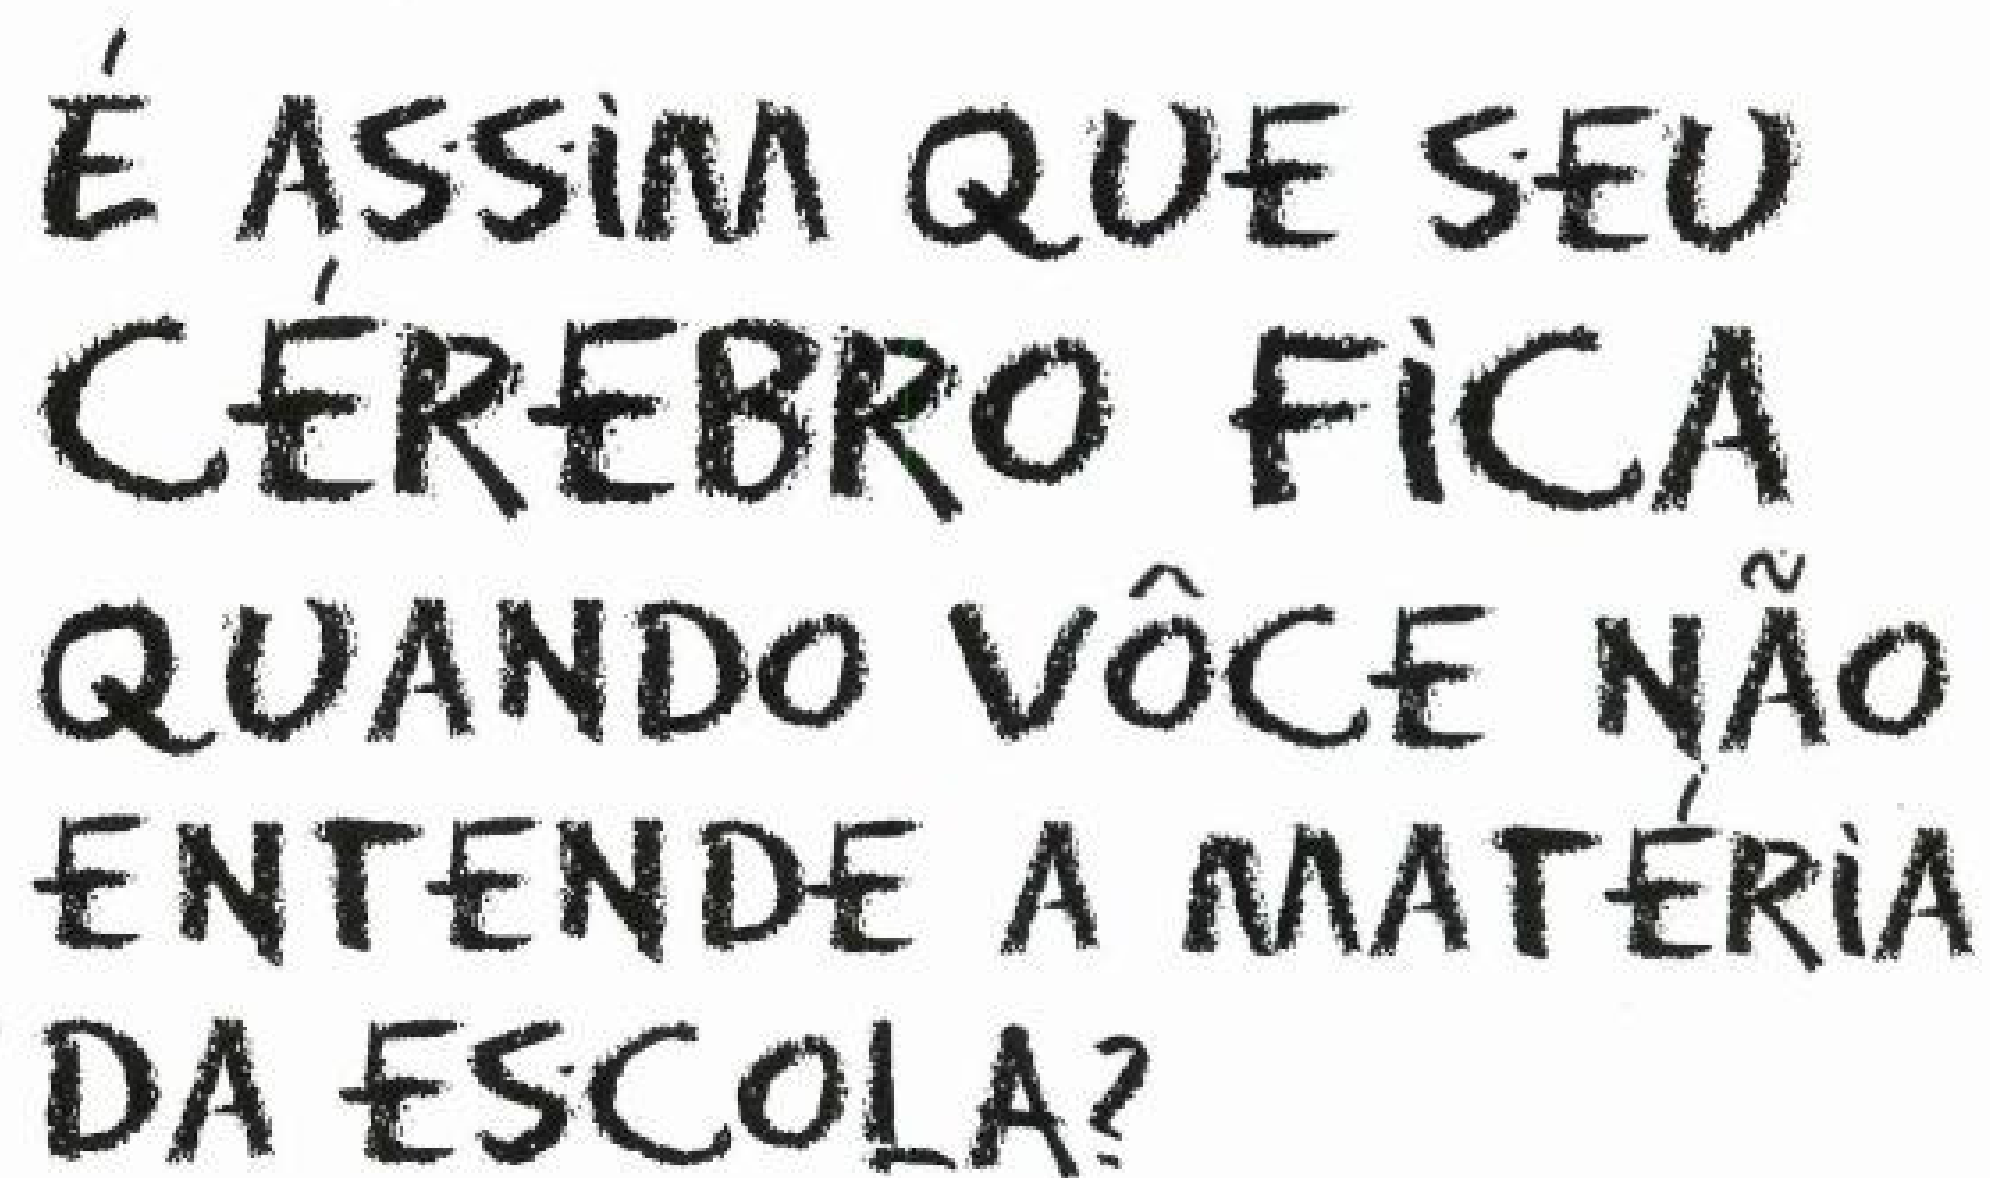 É ASSIM QUE SEU
CÉREBRO FICA
QUANDO VÔCE NÃO
ENTENDE A MATÉRIA
DA ESCOLA?